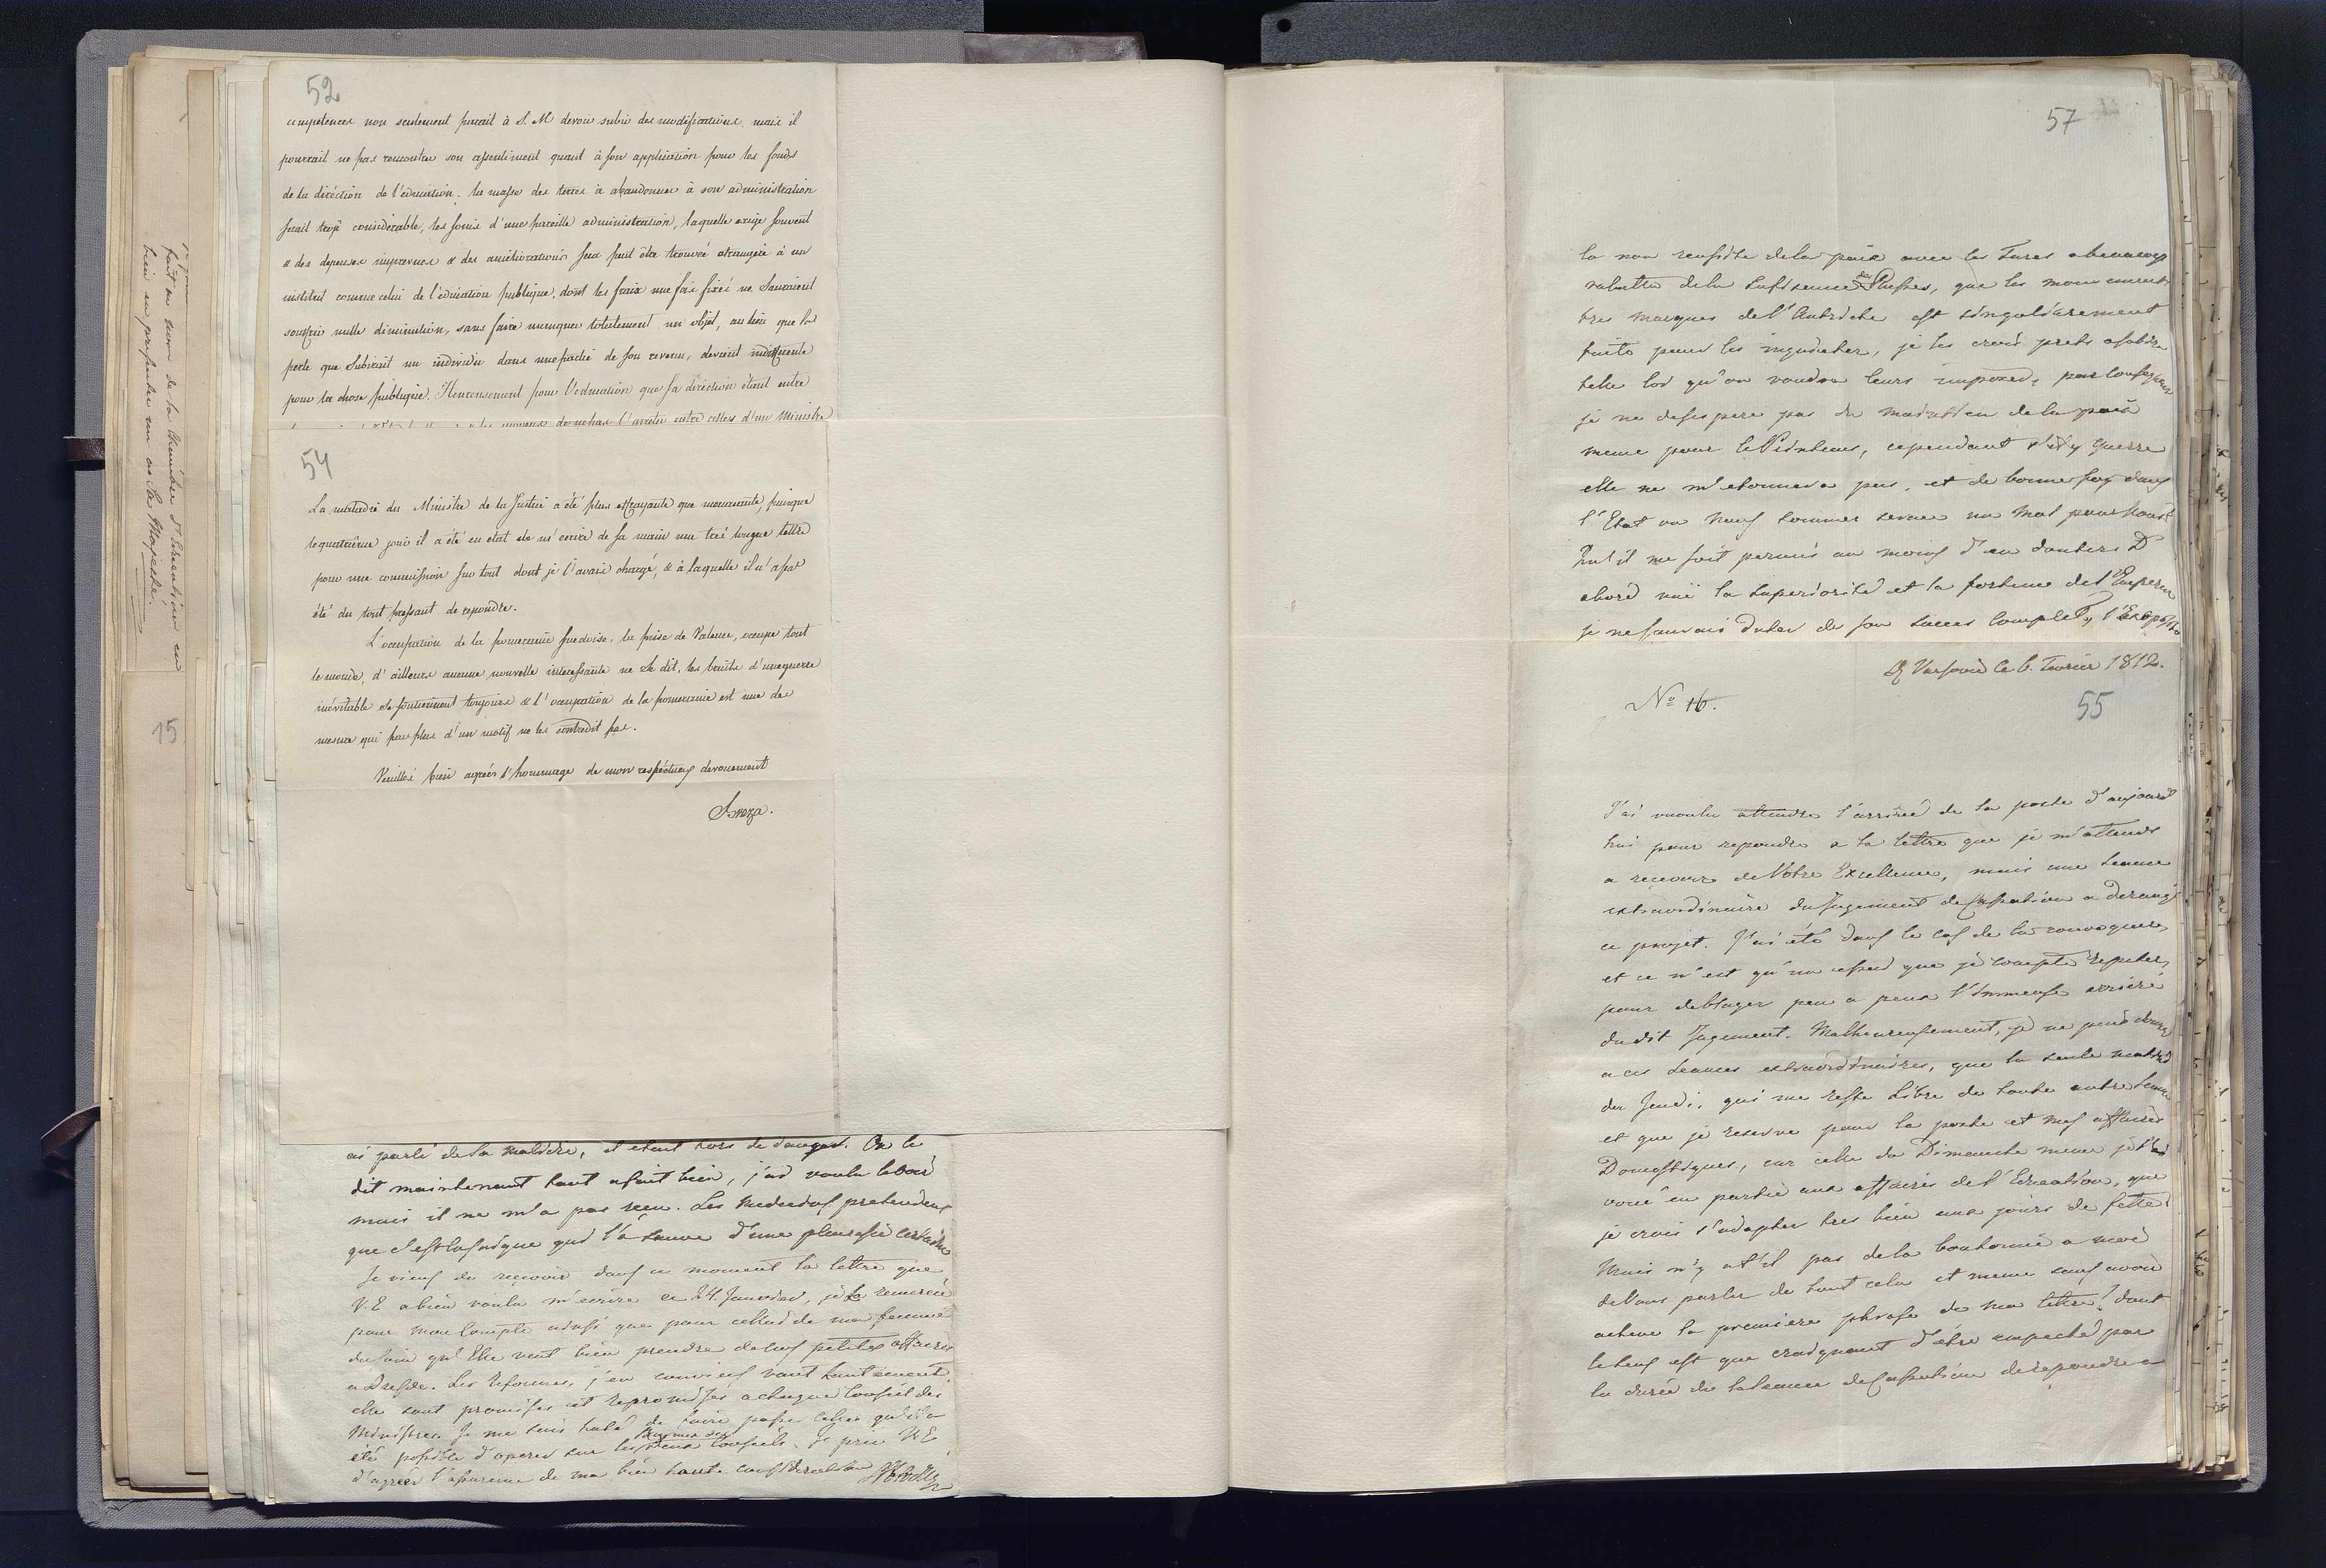 52
competences non seulement parait à S. M devoir subir des modifications mais il
pourrait ne pas rencontrer son assentiment quant à son application pour les fonds
de la diréction de l'education; la masse des terres à abandonner à son administration
serait trop considérable, les soins d'une pareille administration, laquelle exige souvent
& des depenses imprevues & des améliorations seur peut être trouvé etrangère à un
institut comme celui de l'education publique, dont les fraix une fois fixés ne sauraient
souffrir nulle diminution, sans faire manquer totalement un objet, au lieu que la
perte que subirait un individu dans une partie de son revenu, devient indifferente
pour la chose publique. Heureusement pour l'education que sa direction étant entre
moyens de relans l'arreter entre celles d'un Ministre
54
La maladie du Ministre de la Justice a été plus effrayante que menacante, puisque
le quatrième jour il a été en etat de m'ecrire de sa main une tres longue lettre
pour une commission sur tout dont je l'avais chargé, & à laquelle il n'a pas
été du tout pressant de repondre.
L'occupation de la pomeranie suedoise, la prise de Valence, occupe tout
le monde, d'ailleurs aucune nouvelle interessante ne se dit, les bruits d'une guerre
inévitable se soutiennent toujours & l'occupation de la pomeranie est une des
mesures qui pour plus d'un motif ne les contredit pas.
Veuillés bien agréer l'hommage de mon respectueux devouement
Breza.
ai parlé de la maladie, et etant hors de danger. On le
dit maintenant tout afait bien, j'ai voulu le voir
mais il ne m'a pas reçu. Les Medecins pretendent
que c'est la saignée qui l'a sauvé d'une pleuresie certaine
Je viens de reçevoir dans ce moment la lettre que
V. E a bien voulu m'ecrire ce 24. Janvier, je la remercie
pour mon compte ainsi que pour celui de ma femme
du soin qu'Elle veut bien prendre de nos petites affaires
a Dresde. Les Reformes, j'en conviens vont lentement,
elle sont promises et repromises a chaque Conseil des
Ministres. Je me suis haté de faire passer celles qu'il a
été possible d'operer sur les deux Conseils. Je prie V. E
d'agréer l'assurance de ma bien haute consideration
faut au nom de la Chambre d'Education en
bien en presenter un au Sa Majesté.
15
57
la non reussite de la paix avec les Turcs a beaucoup
rabattu de la suffisence des Russes, que les mouvements
tres marqués de l'Autriche est singulierement
faite pour les inquieter, je les crois prets a subir
telle loi qu'on voudra leurs imposer, par consequent
je ne desespere pas du maintien de la paix
meme pour le Printems, cependant s'il y a guerre
elle ne m'etonnera pas, et de bonne foy dans
l'Etat ou nous sommes serace un mal pour nous?
Qu'il me soit permis au moins d'en douter. D
abord vuë la superiorité et la fortune de l'Empereur
je ne saurais douter de son succes complet,
A Varsovie ce 6. Fevrier 1812.
No 16.
55
J'ai vooulu attendre l'arrivée de la poste d'aujourd
hui pour repondre a la lettre que je m'attends
a reçevoir de Votre Excellence, mais une seance
extraordinaire du Jugement de Cassation a derangé
ce projet. J'ai été dans le cas de la convoquer,
et ce n'est qu'un essai que je compte repeter,
pour deblayer peu a peux l'immense arriéré
du dit Jugement. Malheureusement, je ne puis donner
a ces seances extraordinaires, que la seule matinée
du Jeudi, qui me reste libre de toute autre seance
et que je reserve pour la poste et mes affaires
Domestiques, car celle du Dimanche meme je l'ai
voué en partie aux affaires de l'Education, que
je crois s'adapter tres bien aux jours de fette.
Mais n'y at'il pas de la bonhomie a moi
de Vous parler de tout cela et meme sans avoir
acheve la premiere phrase de ma lettre! dont
le sens est que craignant d'etre empeché par
la durée de la seance de Cassation de repondre a